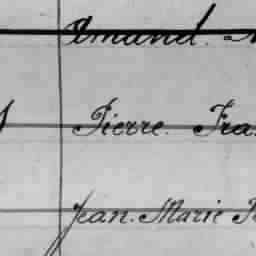 Amand.
Pierre. Fra
Jean. Marie